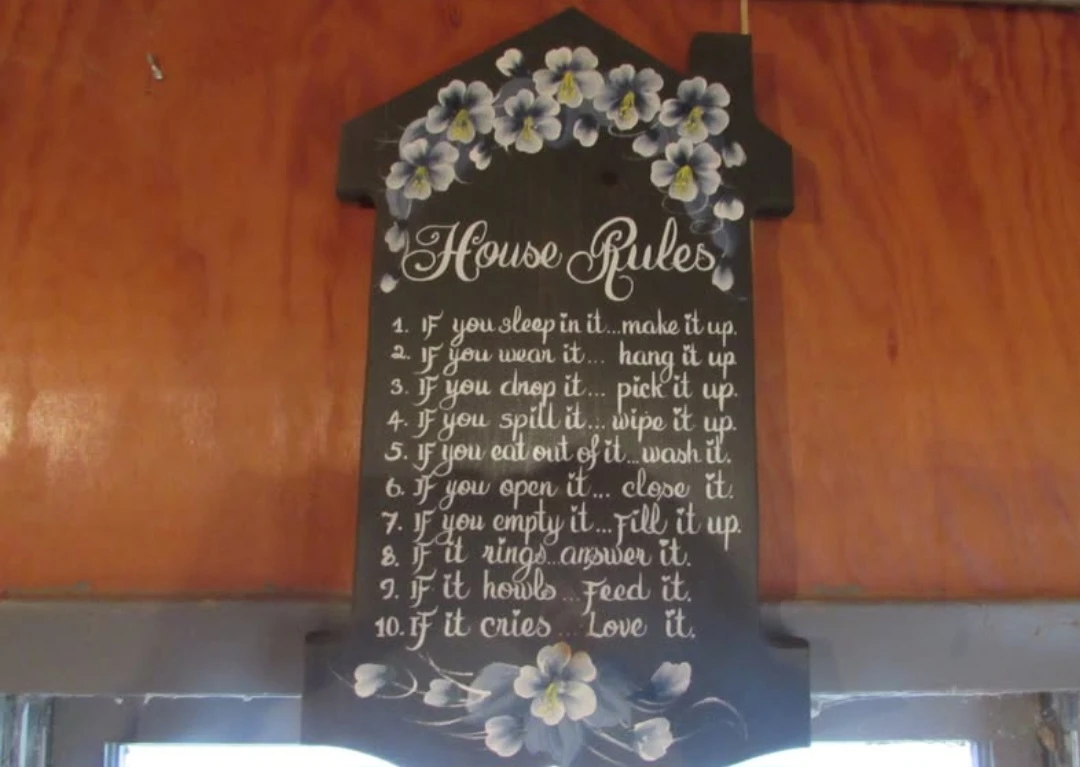 House Rules
1. If you sleep in it...make it up.
2. If you wear it... hang it up
3. If you drop it... pick it up.
4. If you spill it... wipe it up.
5. If you eat out of it...wash it.
6. If you open it... close it.
7. If you empty it...Fill it up.
8. If it rings...answer it.
9. If it howls...Feed it.
10. If it cries...Love it.